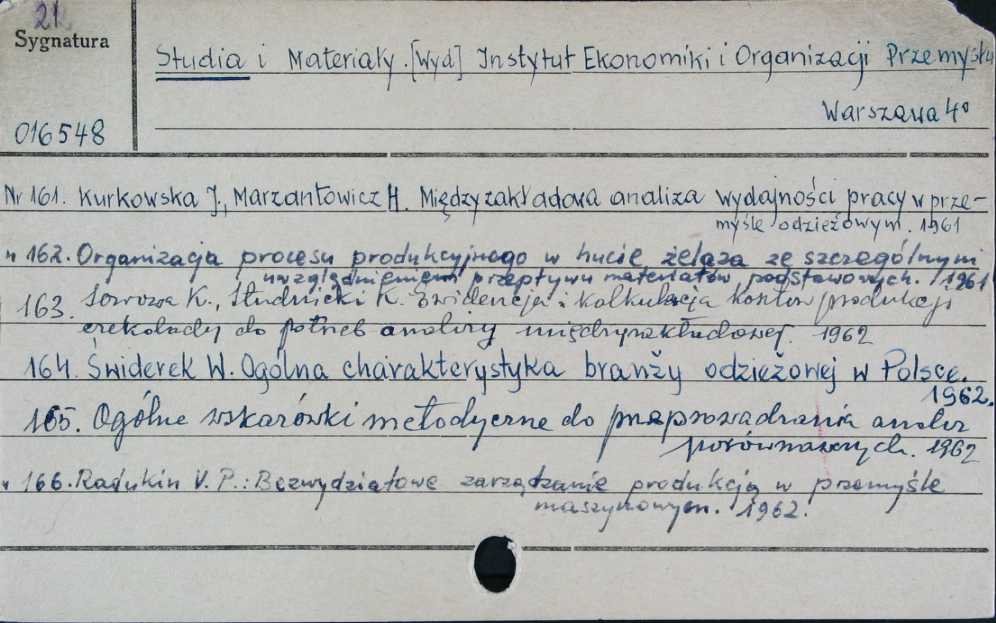 21
Sygnatura
016548
Studia i Materiały. [Wyd] Instytut Ekonomiki i Organizacji Przemysłu
Warszawa 4°
Nr 161. Kurkowska J., Marzantowicz H. Międzyzakładowa analiza wydajności pracy w prze-
myśle odzieżowym. 1961
" 162. Organizacja procesu produkcyjnego w hucie żelaza ze szczególnymi
uwzględnieniem przepływu materiałów podstawowych. 1961
163. Sowowa K., Studnicki K. Ewidencja i kalkulacja kosztów produkcji
czekolady do potrzeb analizy międzyzakładowej. 1962
164. Świderek W. Ogólna charakterystyka branży odzieżowej w Polsce.
1962.
165. Ogólne wskazówki metodyczne do przeprowadzania analiz
porównawczych. 1962
" 166. Radukin V. P.: Bezwydziałowe zarządzanie produkcją w przemyśle
maszynowym. 1962.